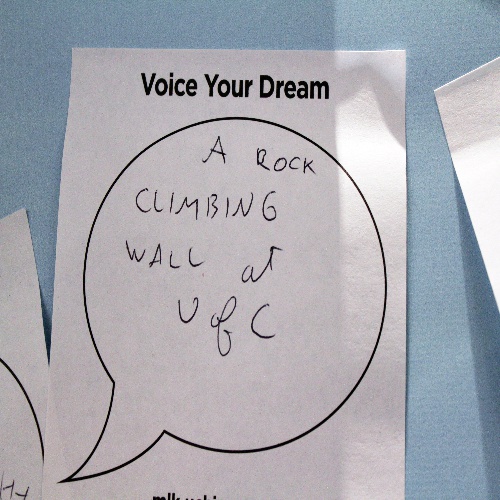 Voice Your Dream
A ROCK
CLIMBING
WALL at
U of C